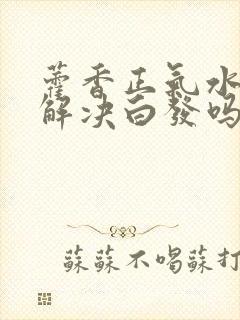 藿香正氣水
解决白發吗
蘇蘇不喝蘇打